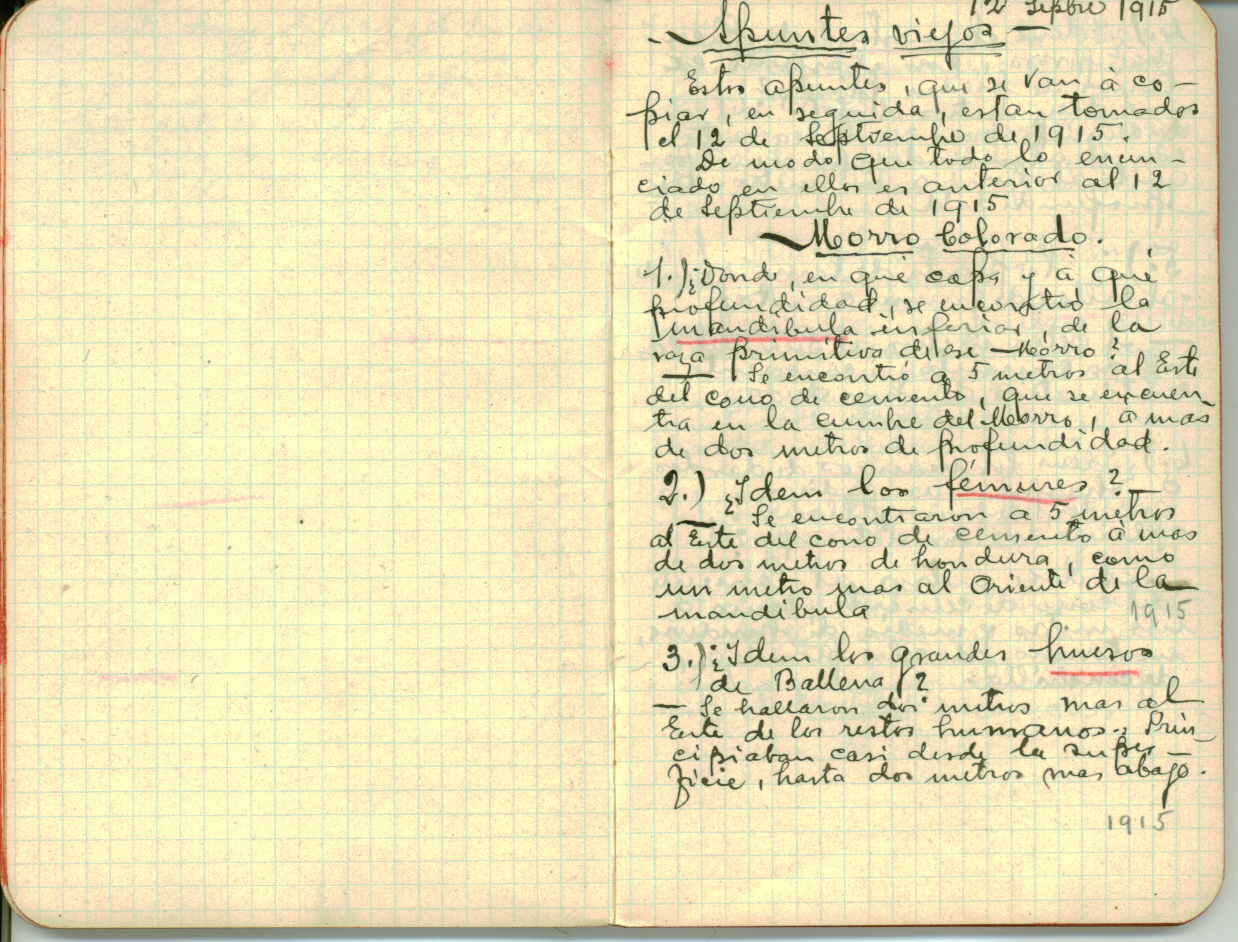 12 Sepbre 1915
- Apuntes viejos -
Estos apuntes, que se van à co-
piar, en seguida, estan tomados
el 12 de Septiembre de 1915.
De modo que todo lo enun-
ciado en ellos es anterior al 12
de Septiembre de 1915
- Morro Colorado.
1.) ¿Donde, en qué capa y à qué
profundidad, se encontró la
mandíbula inferior, de la
raza primitiva de ese Morro?
— Se encontró a 5 metros al Este
del cono de cemento, que se encuen-
tra en la cumbre del Morro, à mas
de dos metros de profundidad.
2.) ¿Idem los fémures?
— Se encontraron a 5 metros
al Este del cono de cemento à mas
de dos metros de hondura, como
un metro mas al Oriente de la
mandibula 1915
3.) ¿Idem los grandes huesos
de Ballena?
— Se hallaron dos metros mas al
Este de los restos humanos. Prin-
cipiaban casi desde la super-
ficie, hasta dos metros mas abajo.
1915